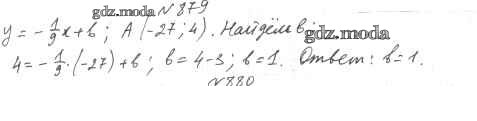 gdz.moda №879
y = -1/9 x + b ; A (-27; 4). Найдём b: gdz.moda
4 = -1/9 · (-27) + b ; b = 4-3 ; b = 1. Ответ: b = 1.
№880